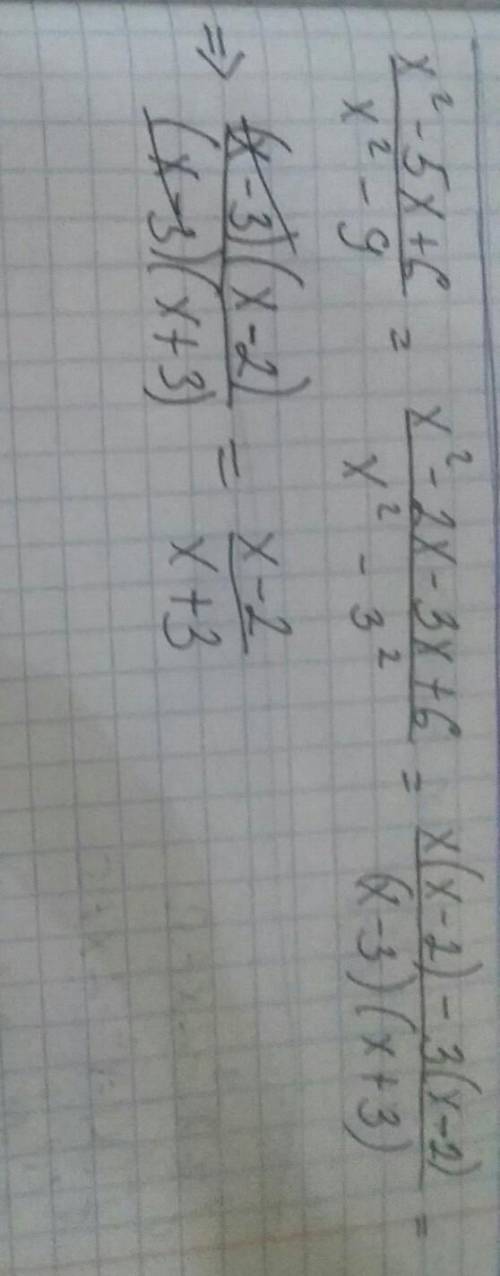 x² - 5x + 6 / x² - 9 = x² - 2x - 3x + 6 / x² - 3² = x(x - 2) - 3(x - 2) / (x - 3)(x + 3) =
=> (x - 3)(x - 2) / (x - 3)(x + 3) = x - 2 / x + 3